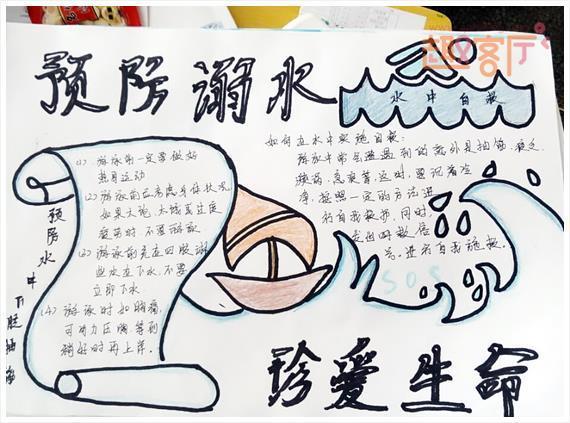 趣客厅
预防溺水
水中自救
(1) 游泳前一定要做好
热身运动
(2) 游泳前应考虑身体状况
如果太饱、太饿或过度
疲劳时,不要游泳
(3) 游泳前先在四肢
然后再下水,不要
立即下水
(4) 游泳时如胸痛,
可用力压胸,等到
稍好时再上岸.
预防水中下肢抽筋
如何在水中实施自救:
游泳中常会遇到的意外是抽筋、疲乏、
冷
静,按照一定的方法进
行自我救护,同时,
发出呼救信
号.
SOS
珍爱生命